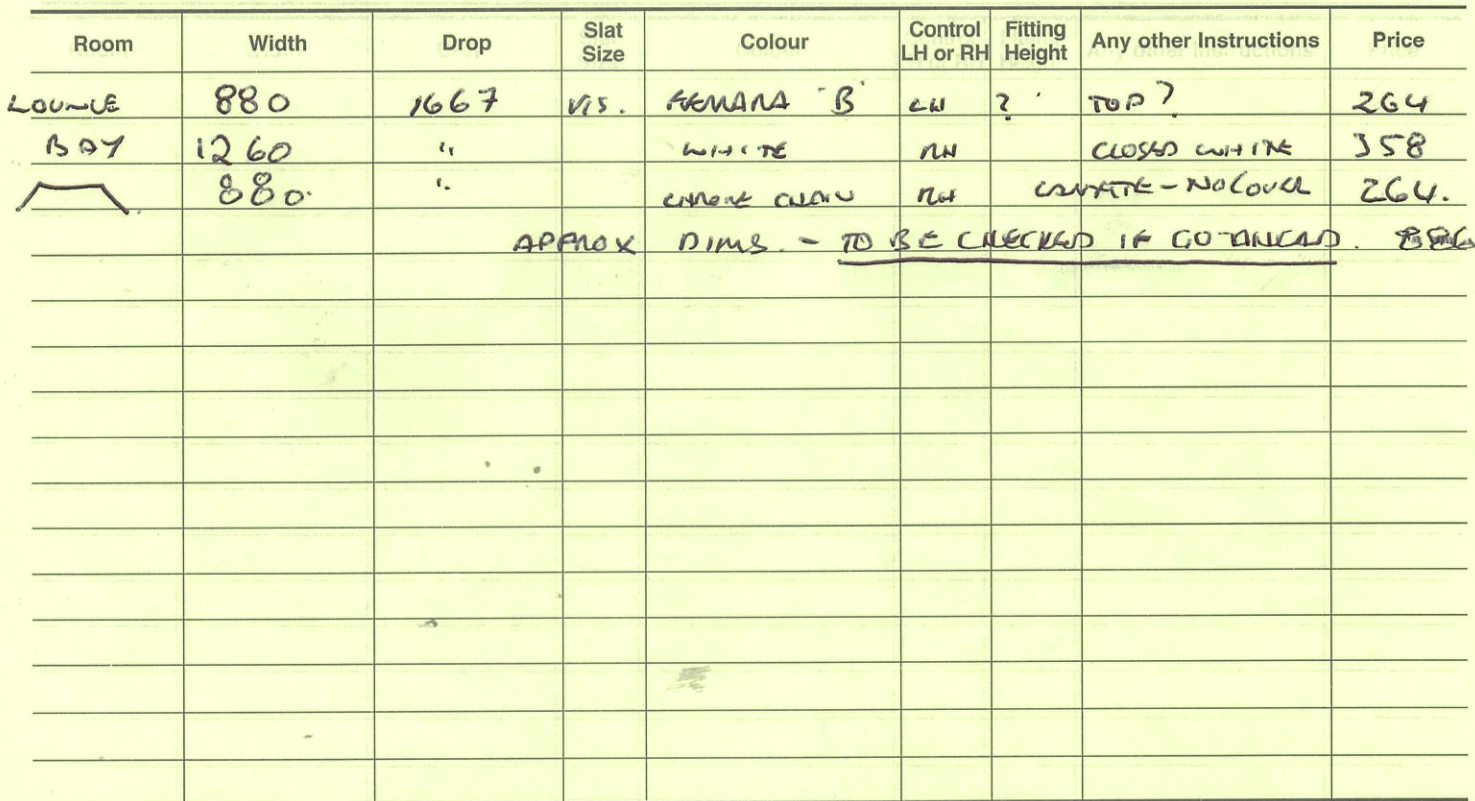 Room Width Drop Slat Size Colour Control LH or RH Fitting Height Any other Instructions Price
LOUNGE 880 1667 VIS. "B" LH ? TOP? 264
BAY 1260 " WHITE RH CLOSED WHITE 358
880. " CHROME CHAIN RH - NO COVER 264.
APPROX DIMS. - TO BE CHECKED IF GO AHEAD. 886